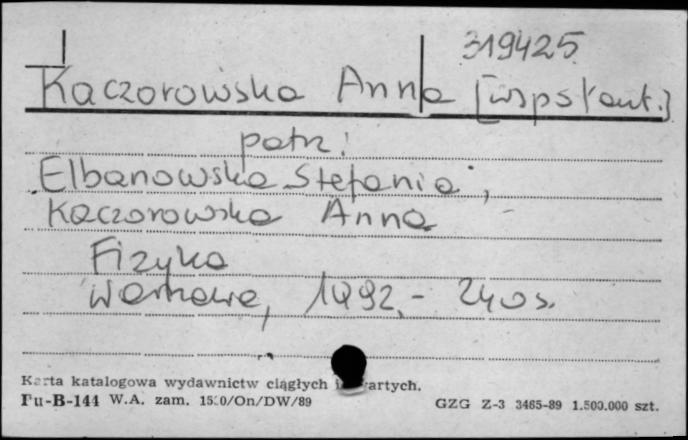 319425
Kaczorowska Anna [współaut.]
patrz:
Elbanowska Stefania,
Kaczorowska Anna
Fizyka
Warszawa, 1992. - 240 s.
Karta katalogowa wydawnictw ciągłych i zwartych.
Pu-B-144 W.A. zam. 1500/On/DW/89
GZG Z-3 3465-89 1.500.000 szt.